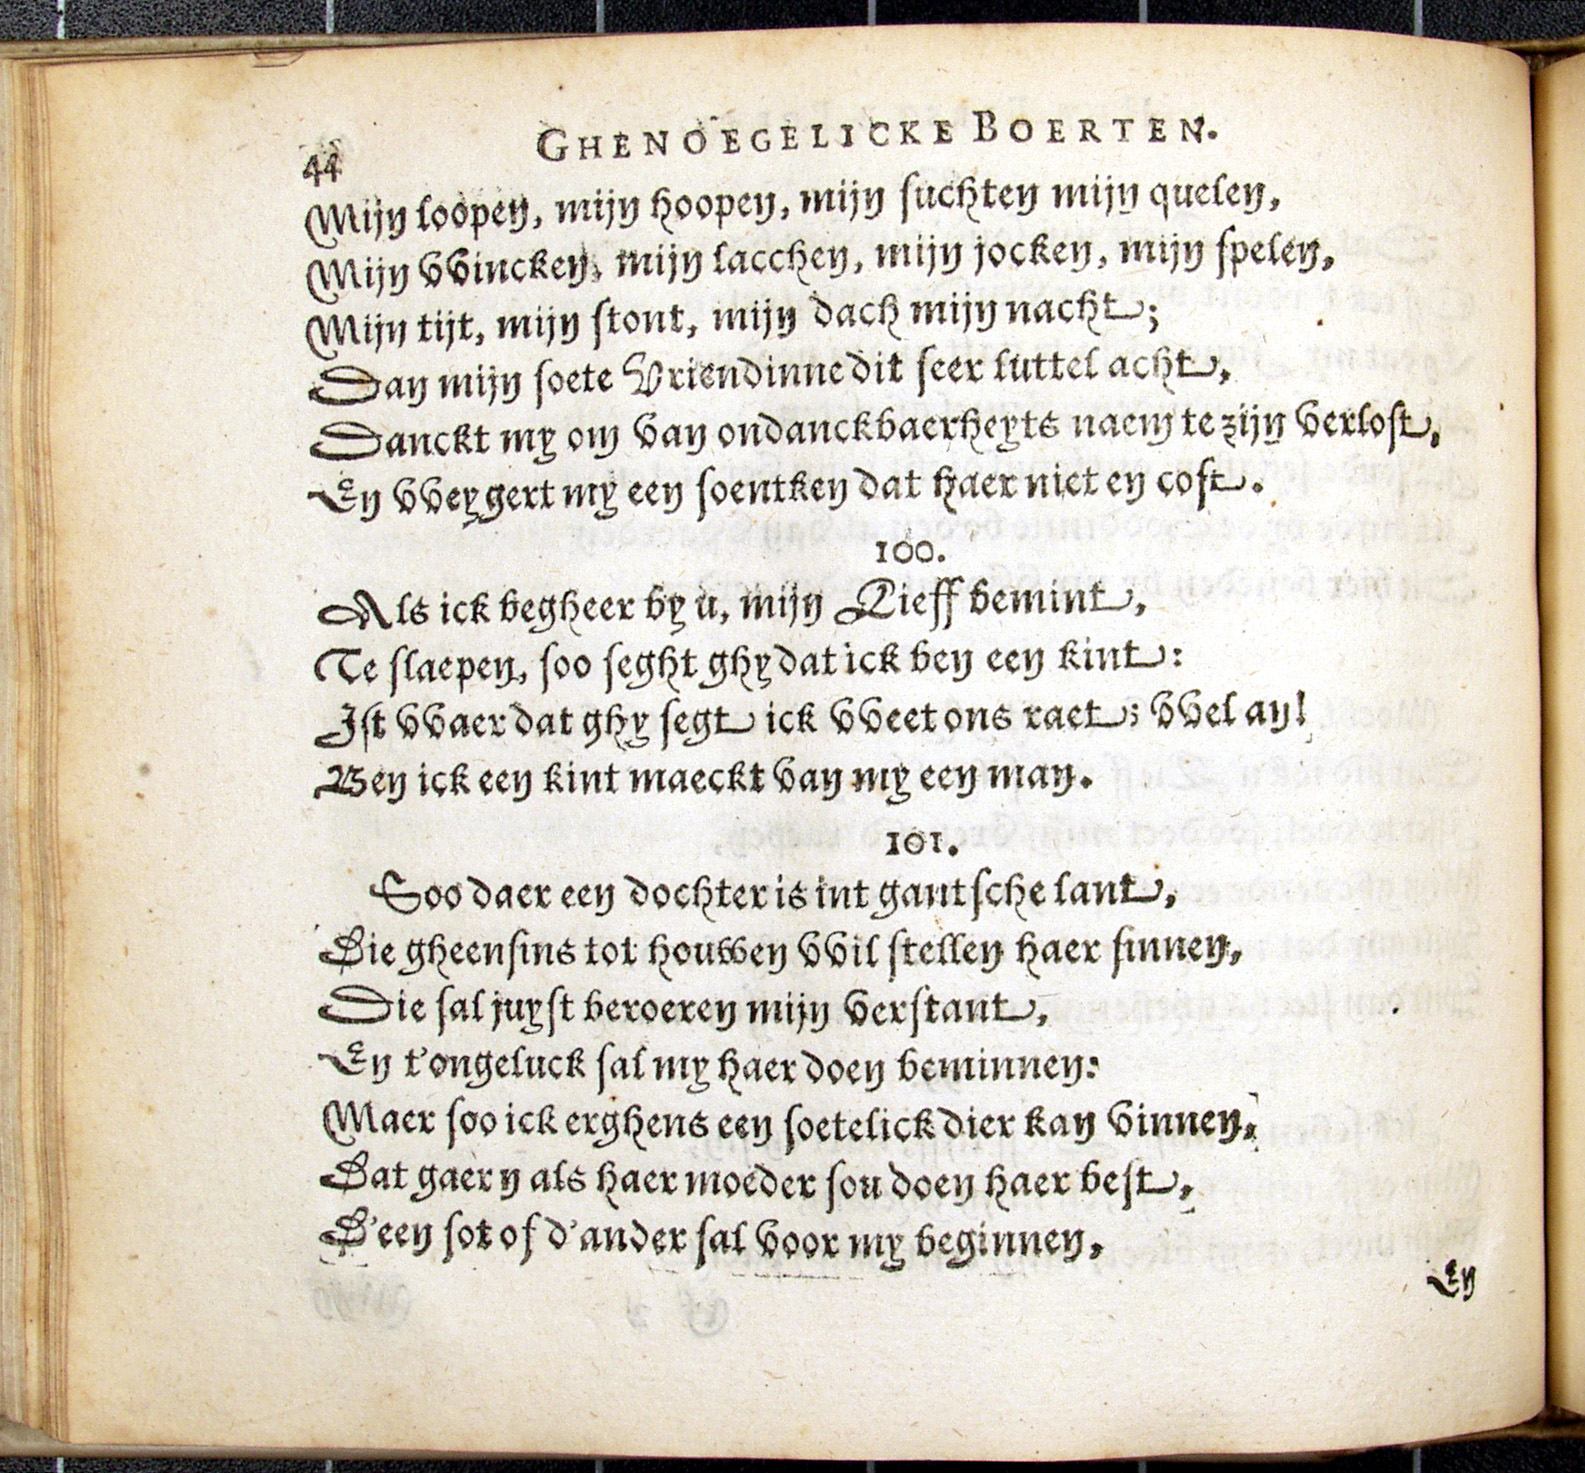 44 GHENOEGELICKE BOERTEN.
Mijn loopen, mijn hoopen, mijn suchten mijn quelen,
Mijn vvincken, mijn lacchen, mijn jocken, mijn spelen,
Mijn tijt, mijn stont, mijn dach mijn nacht;
Dan mijn soete Vriendinne dit seer luttel acht,
Danckt my om van ondanckbaerheyts naem te zijn verlost,
En vveygert my een soentken dat haer niet en cost.
100.
Als ick begheer by u, mijn Lieff bemint,
Te slaepen, soo seght ghy dat ick ben een kint:
Ist vvaer dat ghy segt ick vveet ons raet; vvel an!
Ben ick een kint maeckt van my een man.
101.
Soo daer een dochter is int gantsche lant,
Die gheensins tot houwen vvil stellen haer sinnen,
Die sal juyst beroeren mijn verstant,
En t'ongeluck sal my haer doen beminnen:
Maer soo ick erghens een soetelick dier kan vinnen,
Dat gaern als haer moeder sou doen haer best,
D'een sot of d'ander sal voor my beginnen,
En